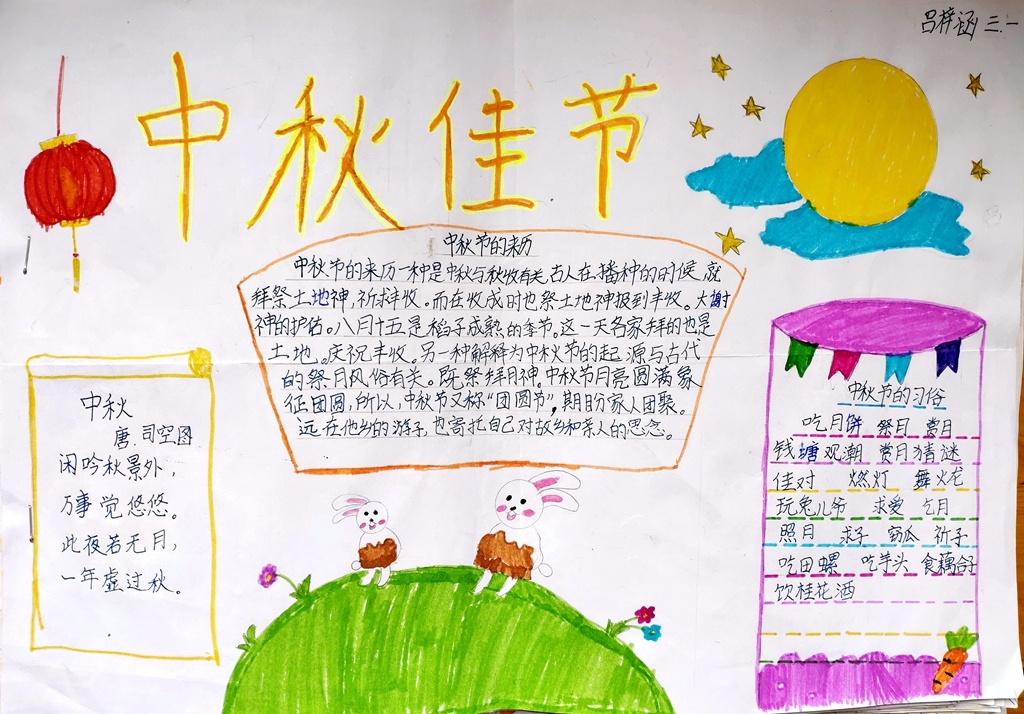 吕梓涵 三.一
中秋佳节
中秋节的来历
中秋节的来历一种是中秋与秋收有关,古人在播种的时候,就
拜祭土地神,祈求丰收。而在收成时也祭土地神报到丰收。大谢
神的护佑。八月十五是稻子成熟的季节。这一天各家拜的也是
土地。庆祝丰收。另一种解释为中秋节的起源与古代
的祭月风俗有关。既祭拜月神。中秋节月亮圆满象
征团圆,所以,中秋节又称“团圆节”,期盼家人团聚。
远在他乡的游子,也寄托自己对故乡和亲人的思念。
中秋
唐.司空图
闲吟秋景外,
万事觉悠悠。
此夜若无月,
一年虚过秋。
中秋节的习俗
吃月饼 祭月 赏月
钱塘观潮 赏月猜谜
佳对 燃灯 舞火龙
玩兔儿爷 求爱 乞月
照月 求子 窃瓜 祈子
吃田螺 吃芋头 食藕合子
饮桂花酒